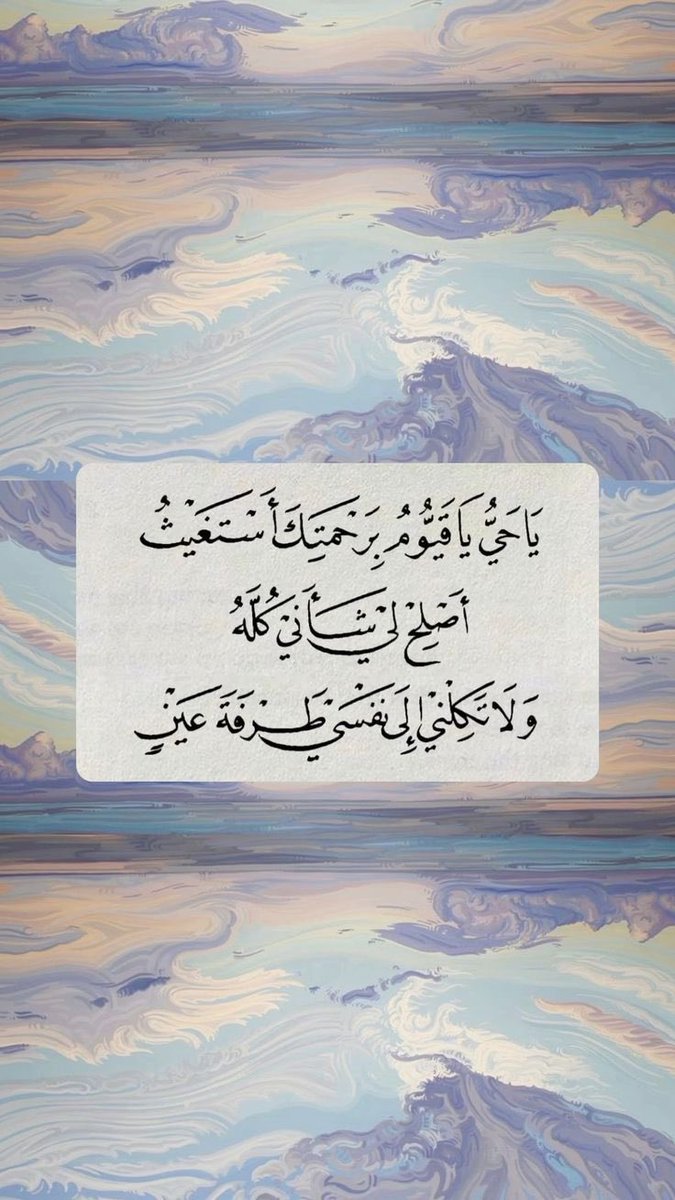 يَا حَيُّ يَا قَيُّوْمُ بِرَحْمَتِكَ أَسْتَغَيْثُ
أَصْلِحْ لِيْ شَأْنِيْ كُلَّهُ
وَلَا تَكِلْنِيْ إِلَى نَفْسِيْ طَرْفَةَ عَيْنٍ